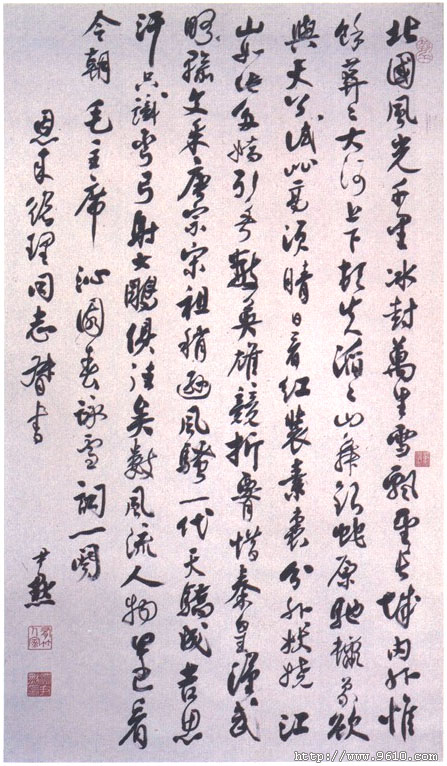 北國風光千里冰封萬里雪飄望長城內外惟
餘莽々大河上下頓失滔々山舞銀蛇原馳蠟象欲
與天公試比高須晴日看紅裝素裹分外妖嬈江
山如此多嬌引無數英雄競折腰惜秦皇漢武
略輸文采唐宗宋祖稍遜風騷一代天驕成吉思
汗只識彎弓射大鵰俱往矣數風流人物還看
今朝 毛主席 沁園春詠雪詞一闋
恩來總理同志督書
尹默
http://www.9610.com